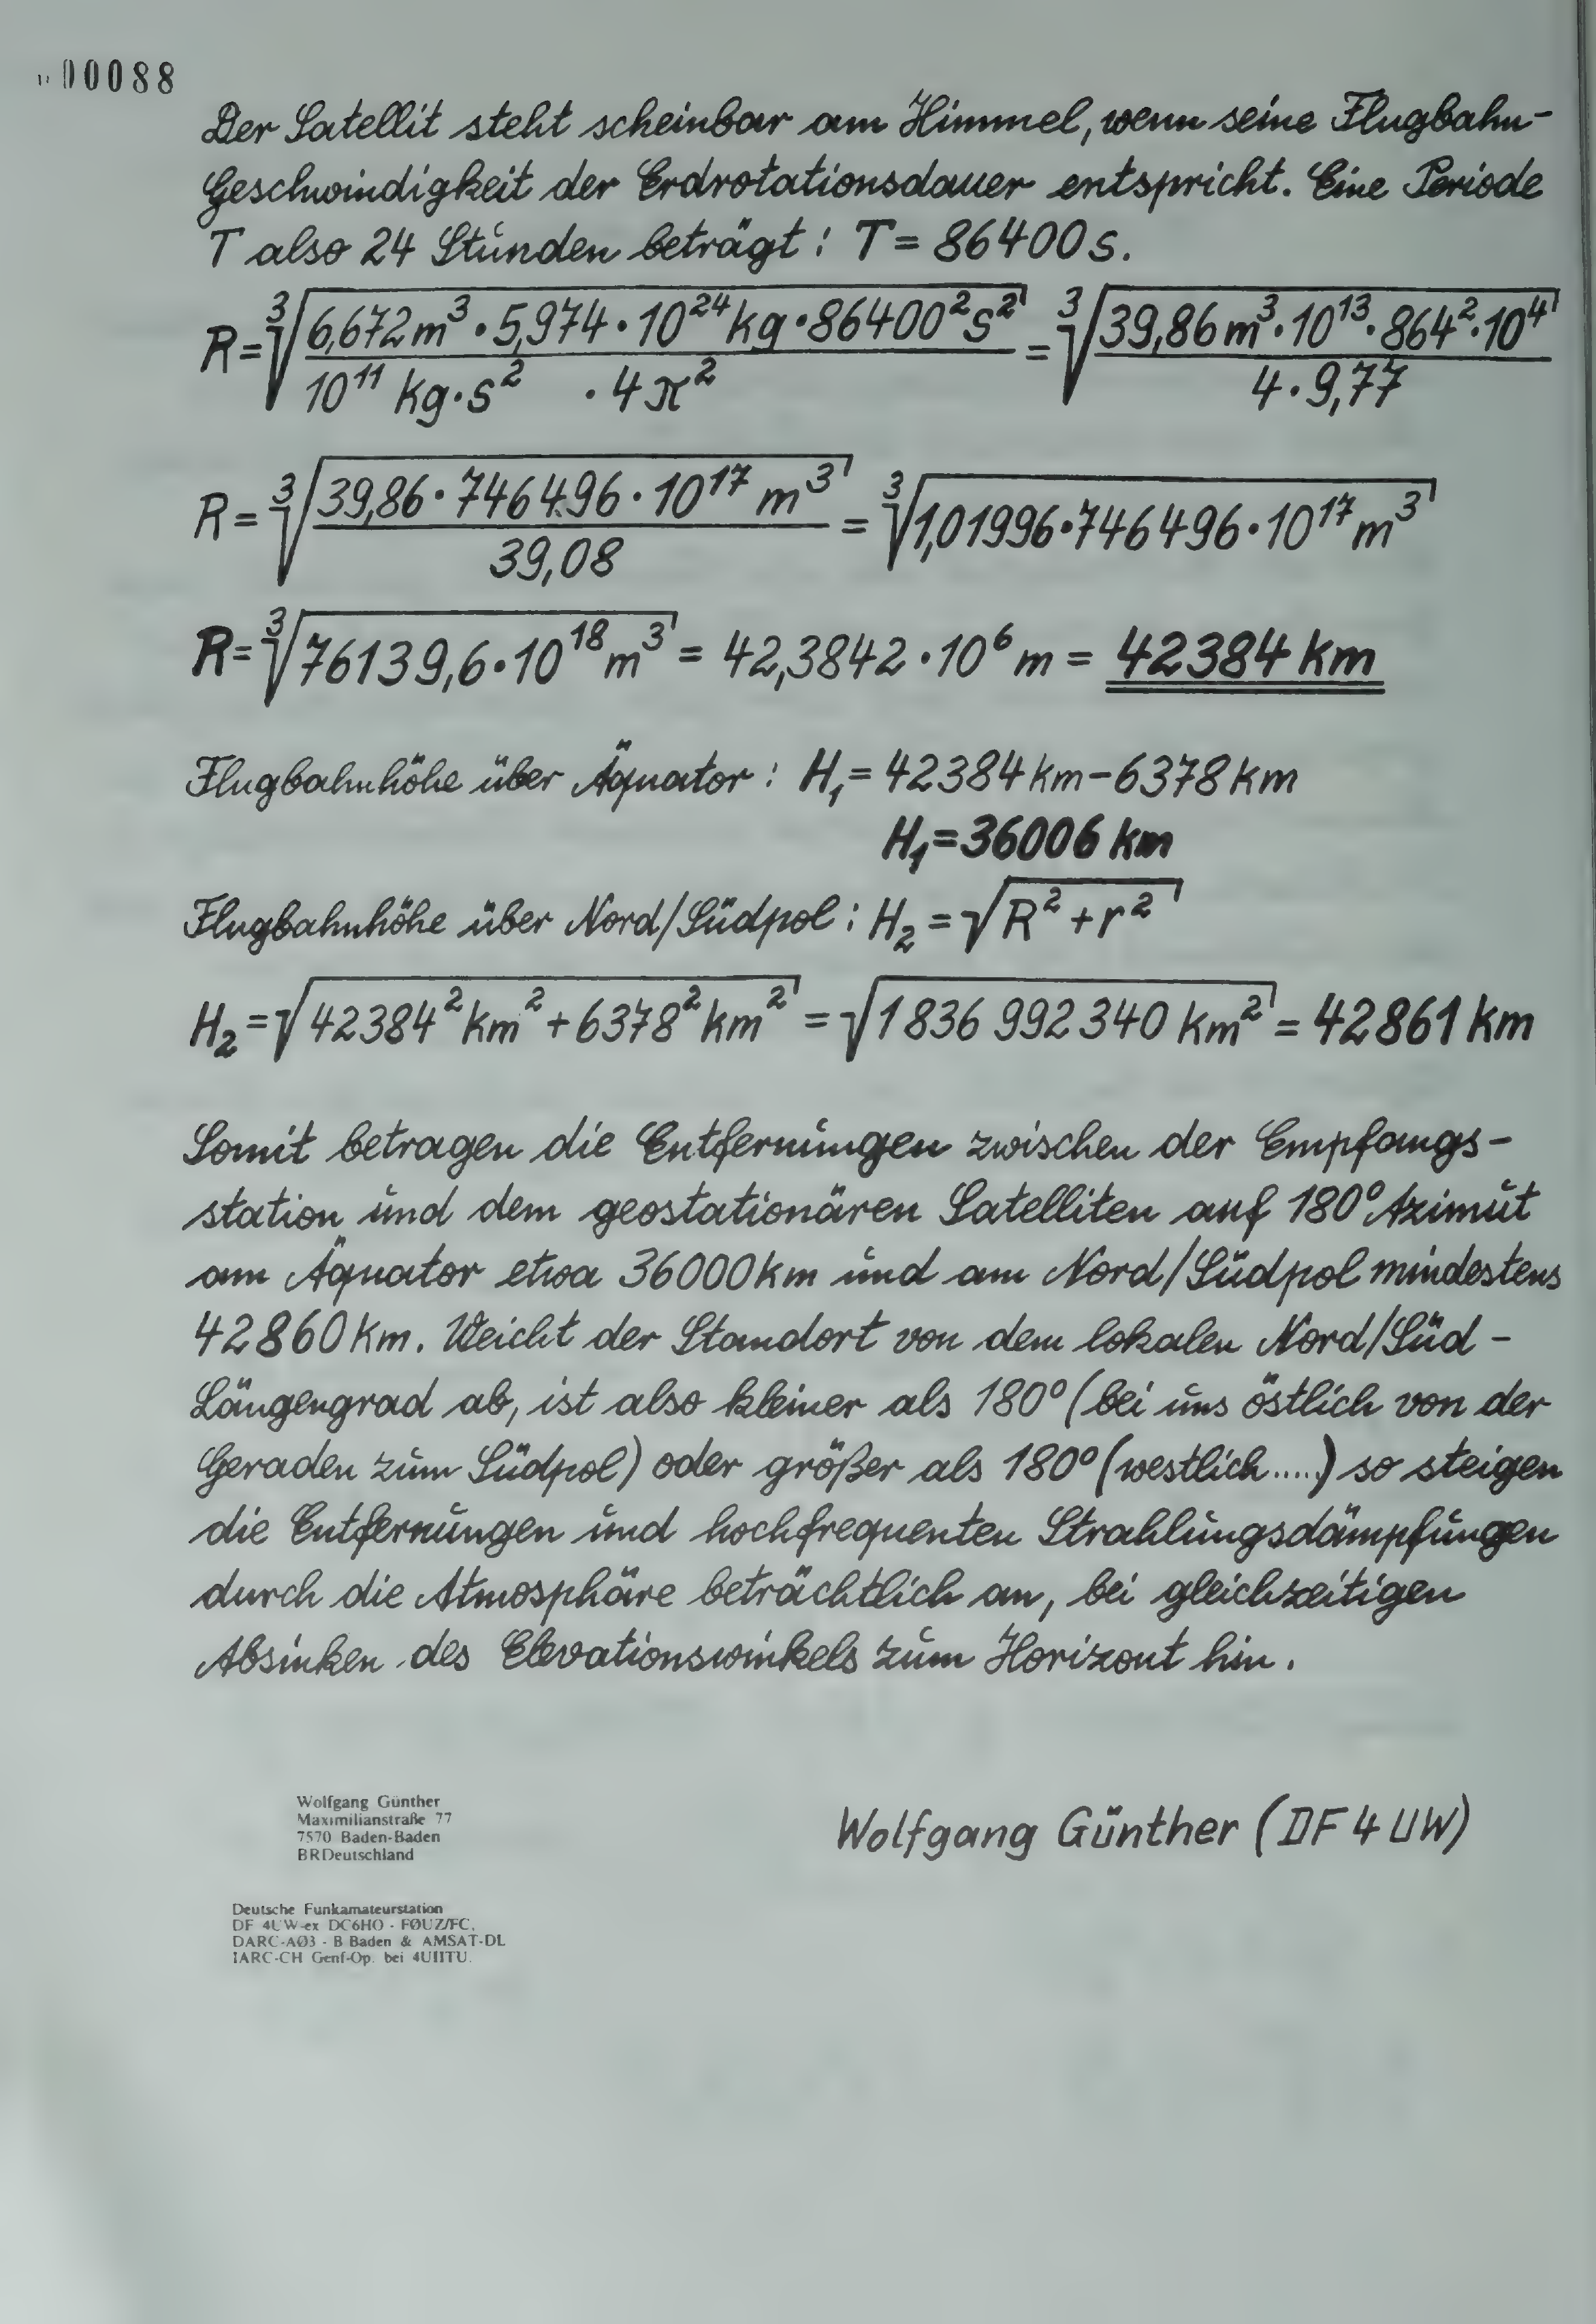 00088
Der Satellit steht scheinbar am Himmel, wenn seine Flugbahn-
Geschwindigkeit der Erdrotationsdauer entspricht. Eine Periode
T also 24 Stunden beträgt: T = 86400 s.
R = ∛(6,672 m³ · 5,974 · 10²⁴ kg · 86400² s² / 10¹¹ kg · s² · 4π²) = ∛(39,86 m³ · 10¹³ · 864² · 10⁴ / 4 · 9,77)
R = ∛(39,86 · 746496 · 10¹⁷ m³ / 39,08) = ∛(1,01996 · 746496 · 10¹⁷ m³)
R = ∛(76139,6 · 10¹⁸ m³) = 42,3842 · 10⁶ m = 42384 km
Flugbahnhöhe über Äquator: H₁ = 42384 km – 6378 km
H₁ = 36006 km
Flugbahnhöhe über Nord/Südpol: H₂ = √(R² + r²)
H₂ = √(42384² km² + 6378² km²) = √(1 836 992 340 km²) = 42861 km
Somit betragen die Entfernungen zwischen der Empfangs-
station und dem geostationären Satelliten auf 180° Azimut
am Äquator etwa 36000 km und am Nord/Südpol mindestens
42860 km. Weicht der Standort von dem lokalen Nord/Süd-
Längengrad ab, ist also kleiner als 180° (bei uns östlich von der
Geraden zum Südpol) oder größer als 180° (westlich.....) so steigen
die Entfernungen und hochfrequenten Strahlungsdämpfungen
durch die Atmosphäre beträchtlich an, bei gleichzeitigen
Absinken des Elevationswinkels zum Horizont hin.
Wolfgang Günther (DF4UW)
Wolfgang Günther
Maximilianstraße 77
7570 Baden-Baden
BRDeutschland
Deutsche Funkamateurstation
DF 4UW-ex DC6HO - FØUZ/FC,
DARC-AØ3 - B Baden & AMSAT-DL
IARC-CH Genf-Op. bei 4U1ITU.